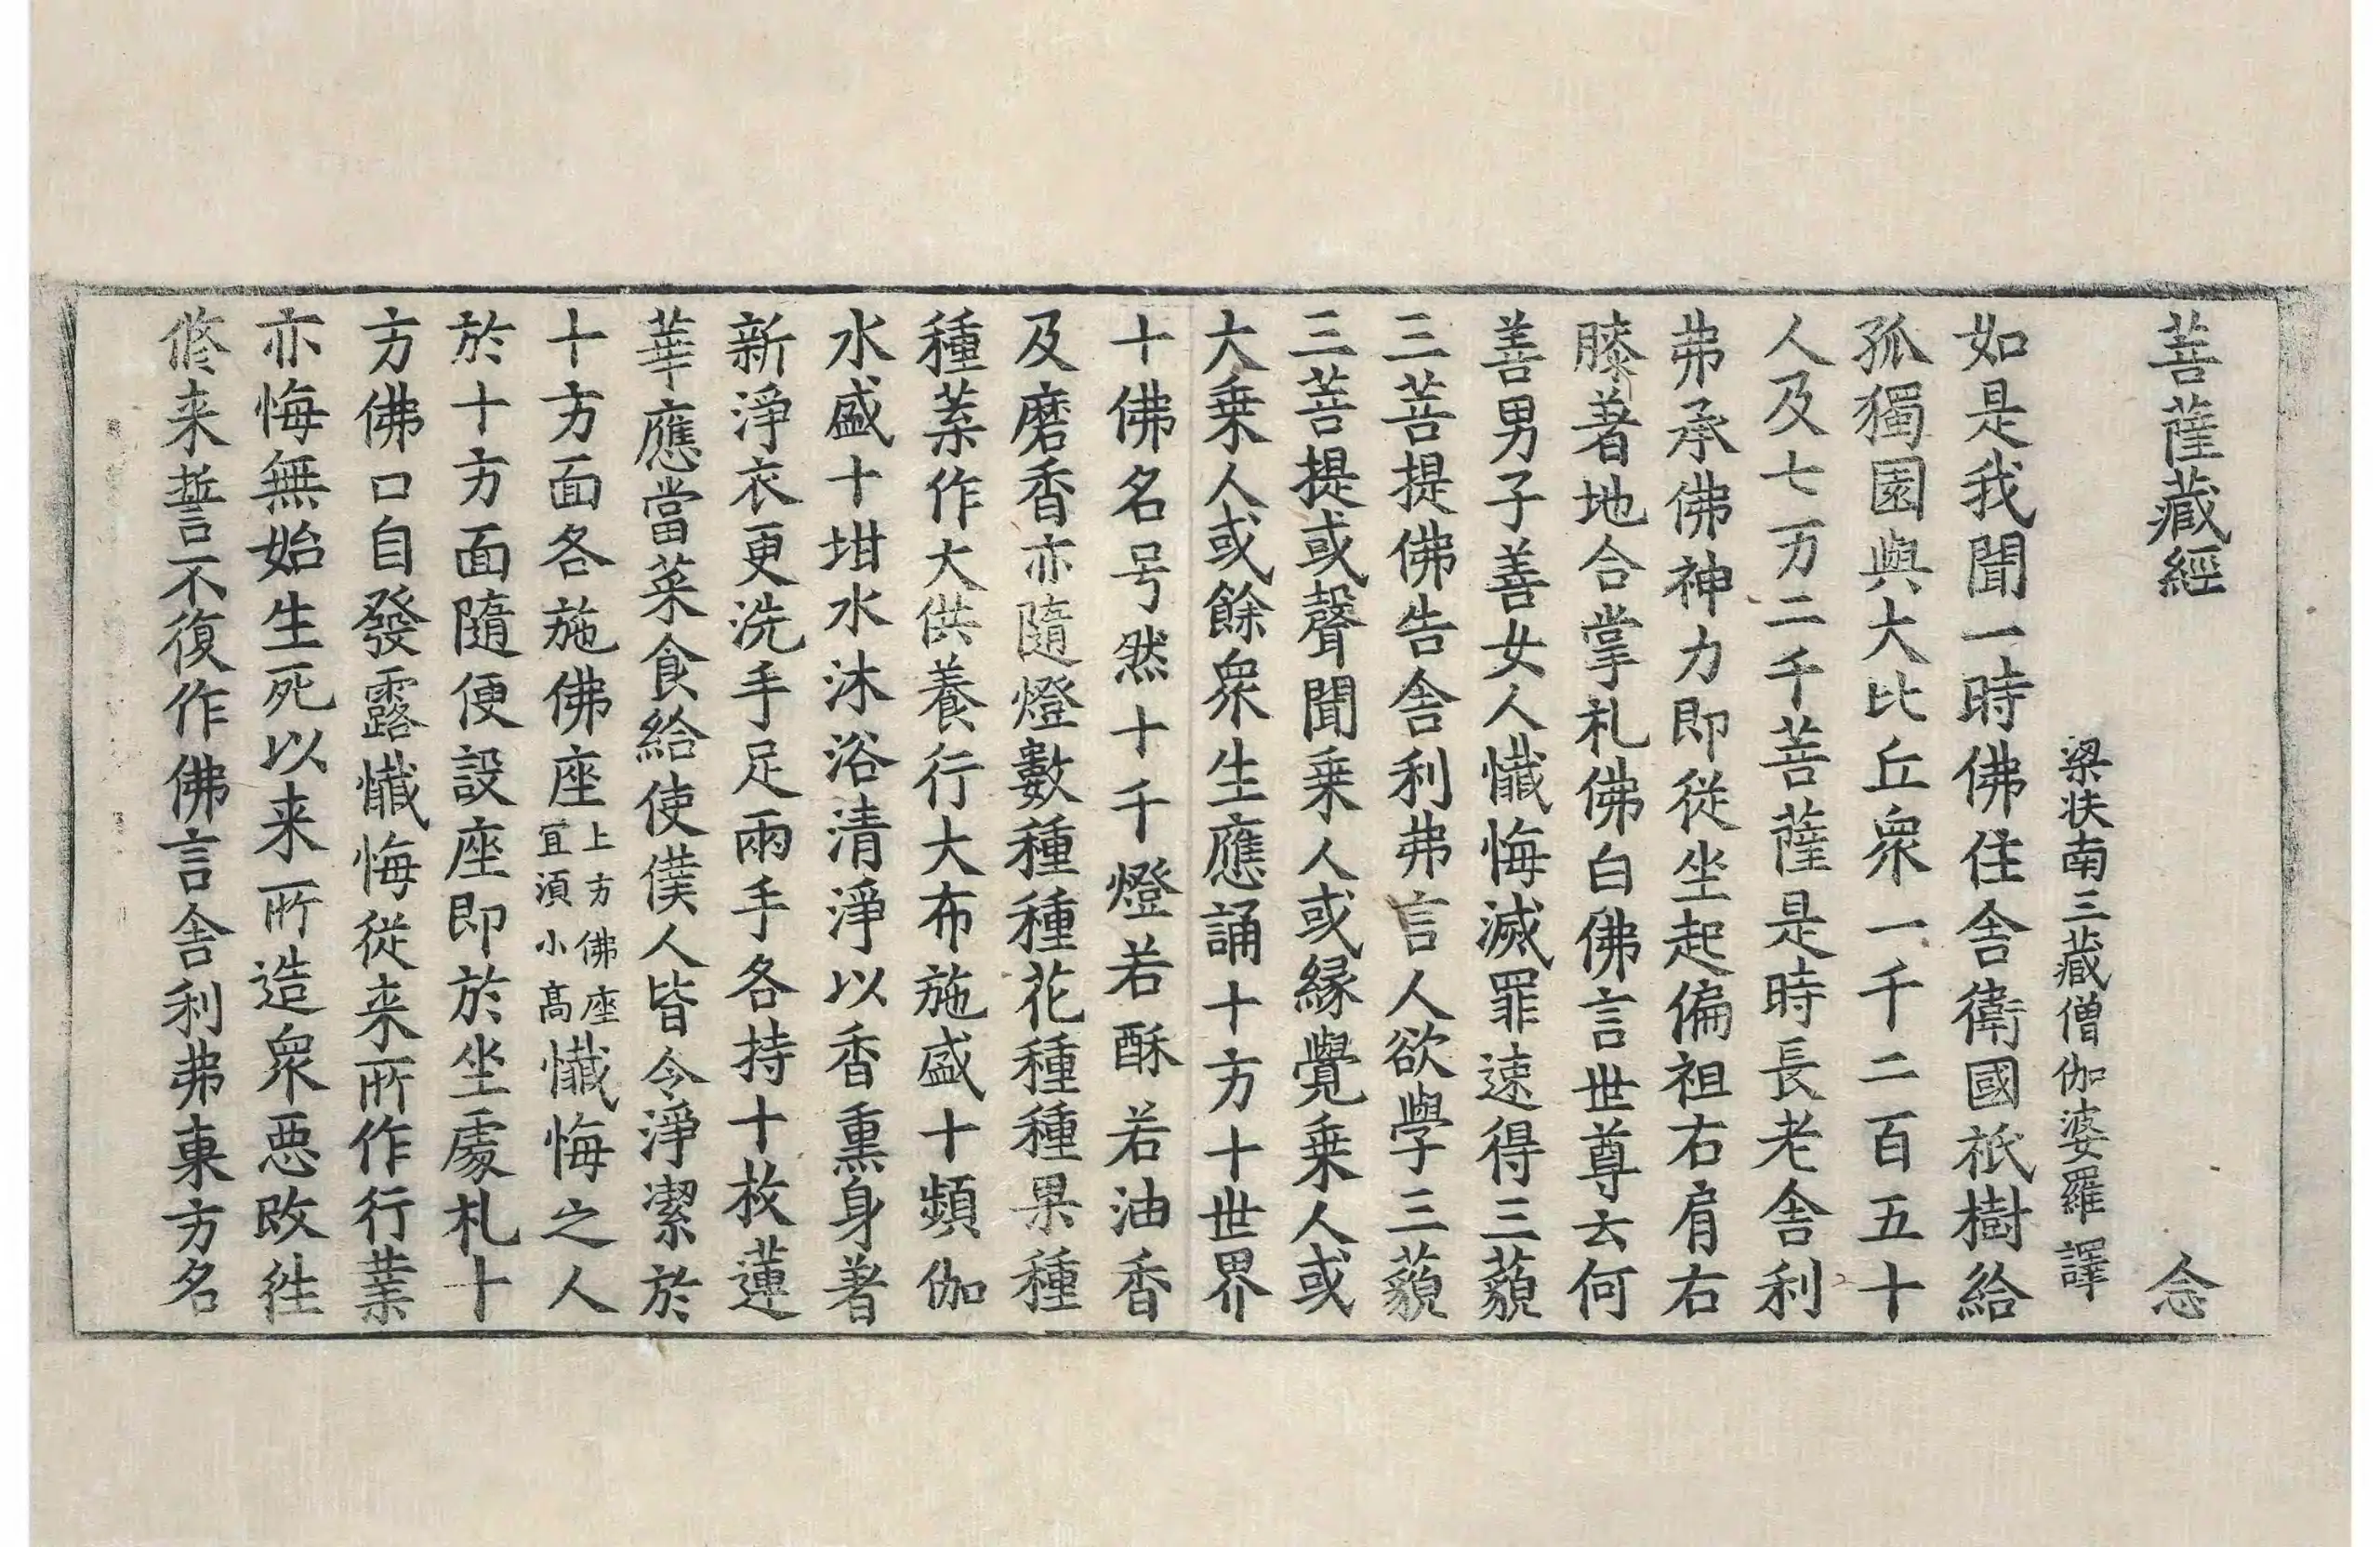 菩薩藏經 念
梁扶南三藏僧伽婆羅 譯
如是我聞一時佛住舍衛國祇樹給
孤獨園與大比丘衆一千二百五十
人及七万二千菩薩是時長老舍利
弗承佛神力即從坐起偏袒右肩右
膝著地合掌礼佛白佛言世尊云何
善男子善女人懺悔滅罪速得三藐
三菩提佛告舍利弗言人欲學三藐
三菩提或聲聞乗人或緣覺乗人或
大乗人或餘衆生應誦十方十世界
十佛名号然十千燈若酥若油香
及磨香亦隨燈數種種花種種果種
種葉作大供養行大布施盛十頻伽
水盛十坩水沐浴清淨以香熏身著
新淨衣更洗手足兩手各持十枚蓮
華應當菜食給使僕人皆令淨潔於
十方面各施佛座上方佛座宜湏小髙懺悔之人
於十方面隨便設座即於坐處礼十
方佛口自發露懺悔從来所作行業
亦悔無始生死以来所造衆惡改徃
修来誓不復作佛言舍利弗東方名